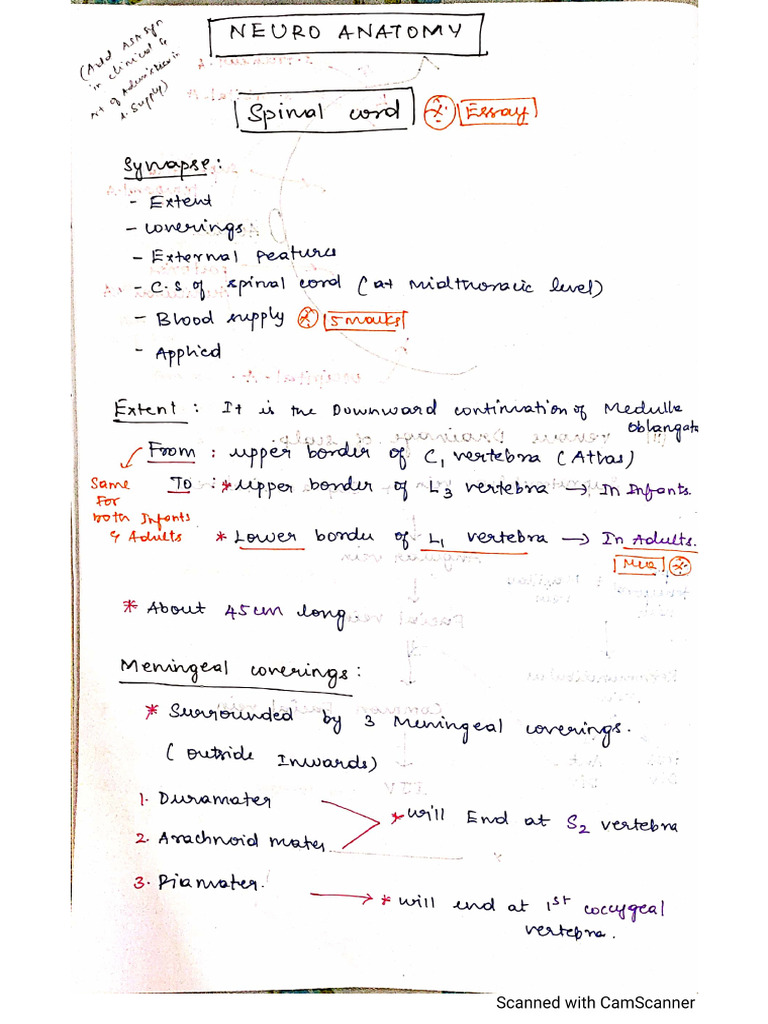 NEURO ANATOMY
(Add ASA syn
in clinical &
Art of Adamkiewicz in
A. Supply)
Spinal cord Essay
Synapse:
- Extent
- coverings
- External features
- C.S of spinal cord (at midthoracic level)
- Blood supply 5 marks
- Applied
Extent: It is the Downward continuation of Medulla
oblangata
From: upper border of C1 vertebra (Atlas)
Same
For
both Infants
& Adults
To: * upper border of L3 vertebra → In Infants.
* Lower border of L1 vertebra → In Adults.
MCQ
* About 45cm long
Meningeal coverings:
* Surrounded by 3 Meningeal coverings.
(outside Inwards)
1. Duramater
2. Arachnoid mater
* will End at S2 vertebra
3. Piamater.
→ * will end at 1st coccygeal
vertebra.
Scanned with CamScanner